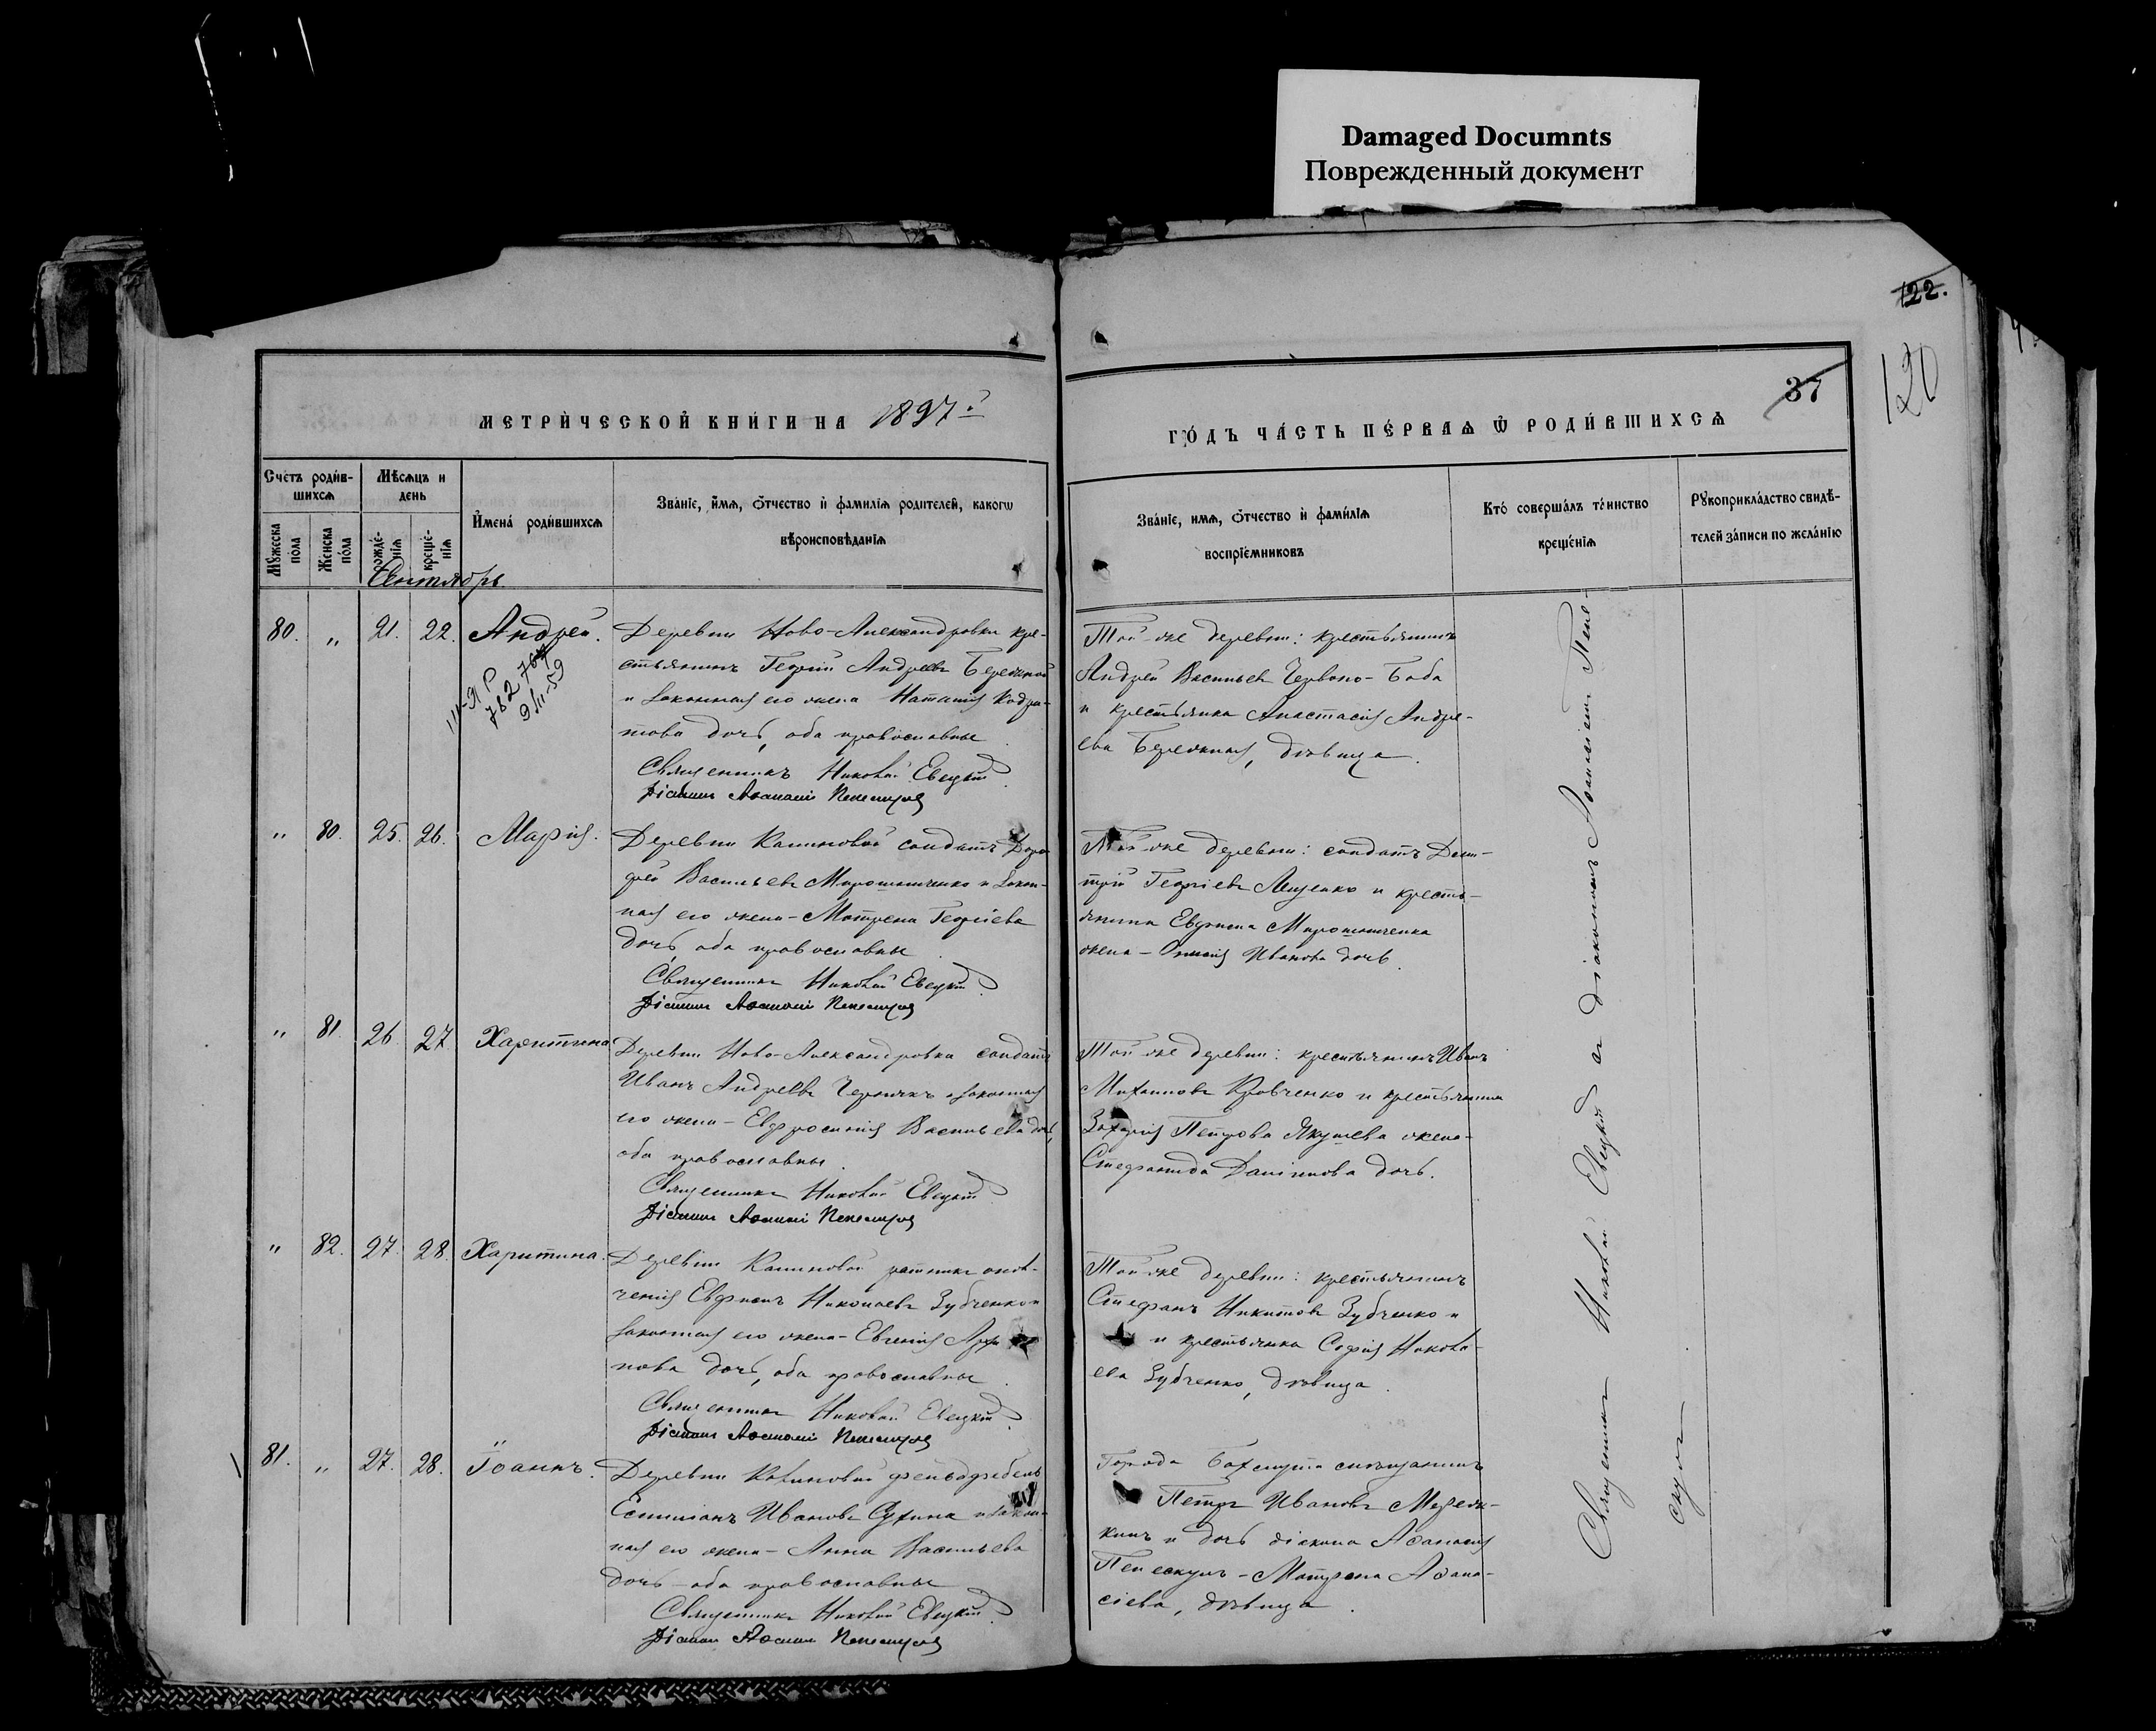 Damaged Documnts
Поврежденный документ
122.
120
37
МЕТРИ́ЧЕСКОЙ КНИ́ГИ НА 1897й
ГО́ДЪ ЧА́СТЬ ПЕ́РВАѦ Ѿ РОДИ́ВШИХСѦ
Счетъ роди́в-
шихсѧ
Мꙋжеска
пола
Женска
по́ла
Мѣсѧцъ и
день
рожде-
нїѧ
креще-
нїѧ
И҆мена́ роди́вшихсѧ
Зва́нїе, и҆́мѧ, ѻ҆́тчество и҆ фамилїѧ родителей, какогѡ
вѣроисповѣданїѧ
Зва́нїе, имѧ, ѻ҆́тчество и҆ фами́лїѧ
воспрїе́мниковъ
Кто́ соверша́лъ та́инство
креще́нїѧ
Рꙋкоприкла́дство свидѣ́-
телей за́писи по жела́нїю
Сентябрь
80. „ 21. 22. Андрей.
782 764
9/II-59
Деревни Ново-Александровки кре-
стьянинъ Георгій Андреевъ Бережной
и законная его жена Наталія Кодра-
това дочь, оба православные
Священникъ Николай Евецкій
Діаконъ Аѳанасій Пепескулъ
Той же деревни: крестьянинъ
Андрей Васильевъ Червоно-Баба
и крестьянка Анастасія Андре-
ева Бережная, дѣвица.
„ 80. 25. 26. Марія.
Деревни Калиновой солдатъ
Васильевъ Мирошниченко и закон-
ная его жена - Матрена Георгіева
дочь, оба православные.
Священникъ Николай Евецкій
Діаконъ Аѳанасій Пепескулъ
Той же деревни: солдатъ Дими-
трій Георгіевъ Луценко и кресть-
янина Евфима Мирошниченка
жена - Иванова дочь.
„ 81. 26. 27. Харитина
Деревни Ново-Александровки солдатъ
Иванъ Андреевъ Чернякъ и законная
его жена - Евфросинія Васильева дочь,
оба православные.
Священникъ Николай Евецкій
Діаконъ Аѳанасій Пепескулъ
Той же деревни: крестьянинъ Иванъ
Михаиловъ Кравченко и крестьянина
Захарія Петрова Якушева жена-
Стефанида Даніилова дочь.
„ 82. 27. 28. Харитина.
Деревни Калиновой ратникъ опол-
ченія Евфимъ Николаевъ Зубченко и
законная его жена - Евгенія
нова дочь, оба православные.
Священникъ Николай Евецкій
Діаконъ Аѳанасій Пепескулъ
Той же деревни: крестьянинъ
Стефанъ Никитовъ Зубченко и
и крестьянка Софія Никола-
ева Зубченко, дѣвица.
81. „ 27. 28. Іоаннъ.
Деревни Калиновой фельдфебель
Емиліанъ Ивановъ Сухина и закон-
ная его жена - Анна Васильева
дочь - оба православные
Священникъ Николай Евецкій
Діаконъ Аѳанасій Пепескулъ
Города Бахмута мѣщанинъ
Петръ Ивановъ
и дочь діакона Аѳанасія
Пепескулъ - Матрона Аѳана-
сіева, дѣвица.
Священникъ Николай Евецкій съ діакономъ Аѳанасіемъ Пепе-
скулъ